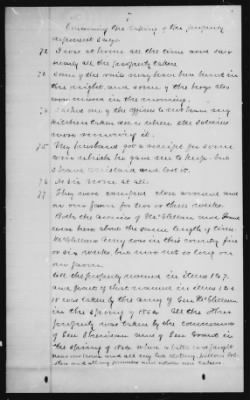 Concerning the taking of the property
deponent says
72 I was at home all the time and saw
nearly all the property taken
73 Some of the rails may have been burned in
the night, and some of the hogs also
were in the morning.
74 I asked one of the officers to not burn my
kitchen taken down where the soldiers
were removing it.
75 My husband got a receipt for some
corn which he gave me to keep, but
I have and lost it.
76 as in none at all.
77 They were camped close around and
on our farm for two or three weeks.
Both the armies of McClellan and
were here about the same length of time.
McClellan's Army was in this country five
or six weeks but were not so long on
our farm.
All the property named in items 1 & 7,
and part of that named in items
was taken by the army of Gen McClellan
in the Spring of 1862. All the other
property was taken by the commands
of Gen Sheridan and of Gen Grant in
the Spring of 1864. When a battle was fought
near our house and all my bed clothing, pillows bol-
sters and all my were taken